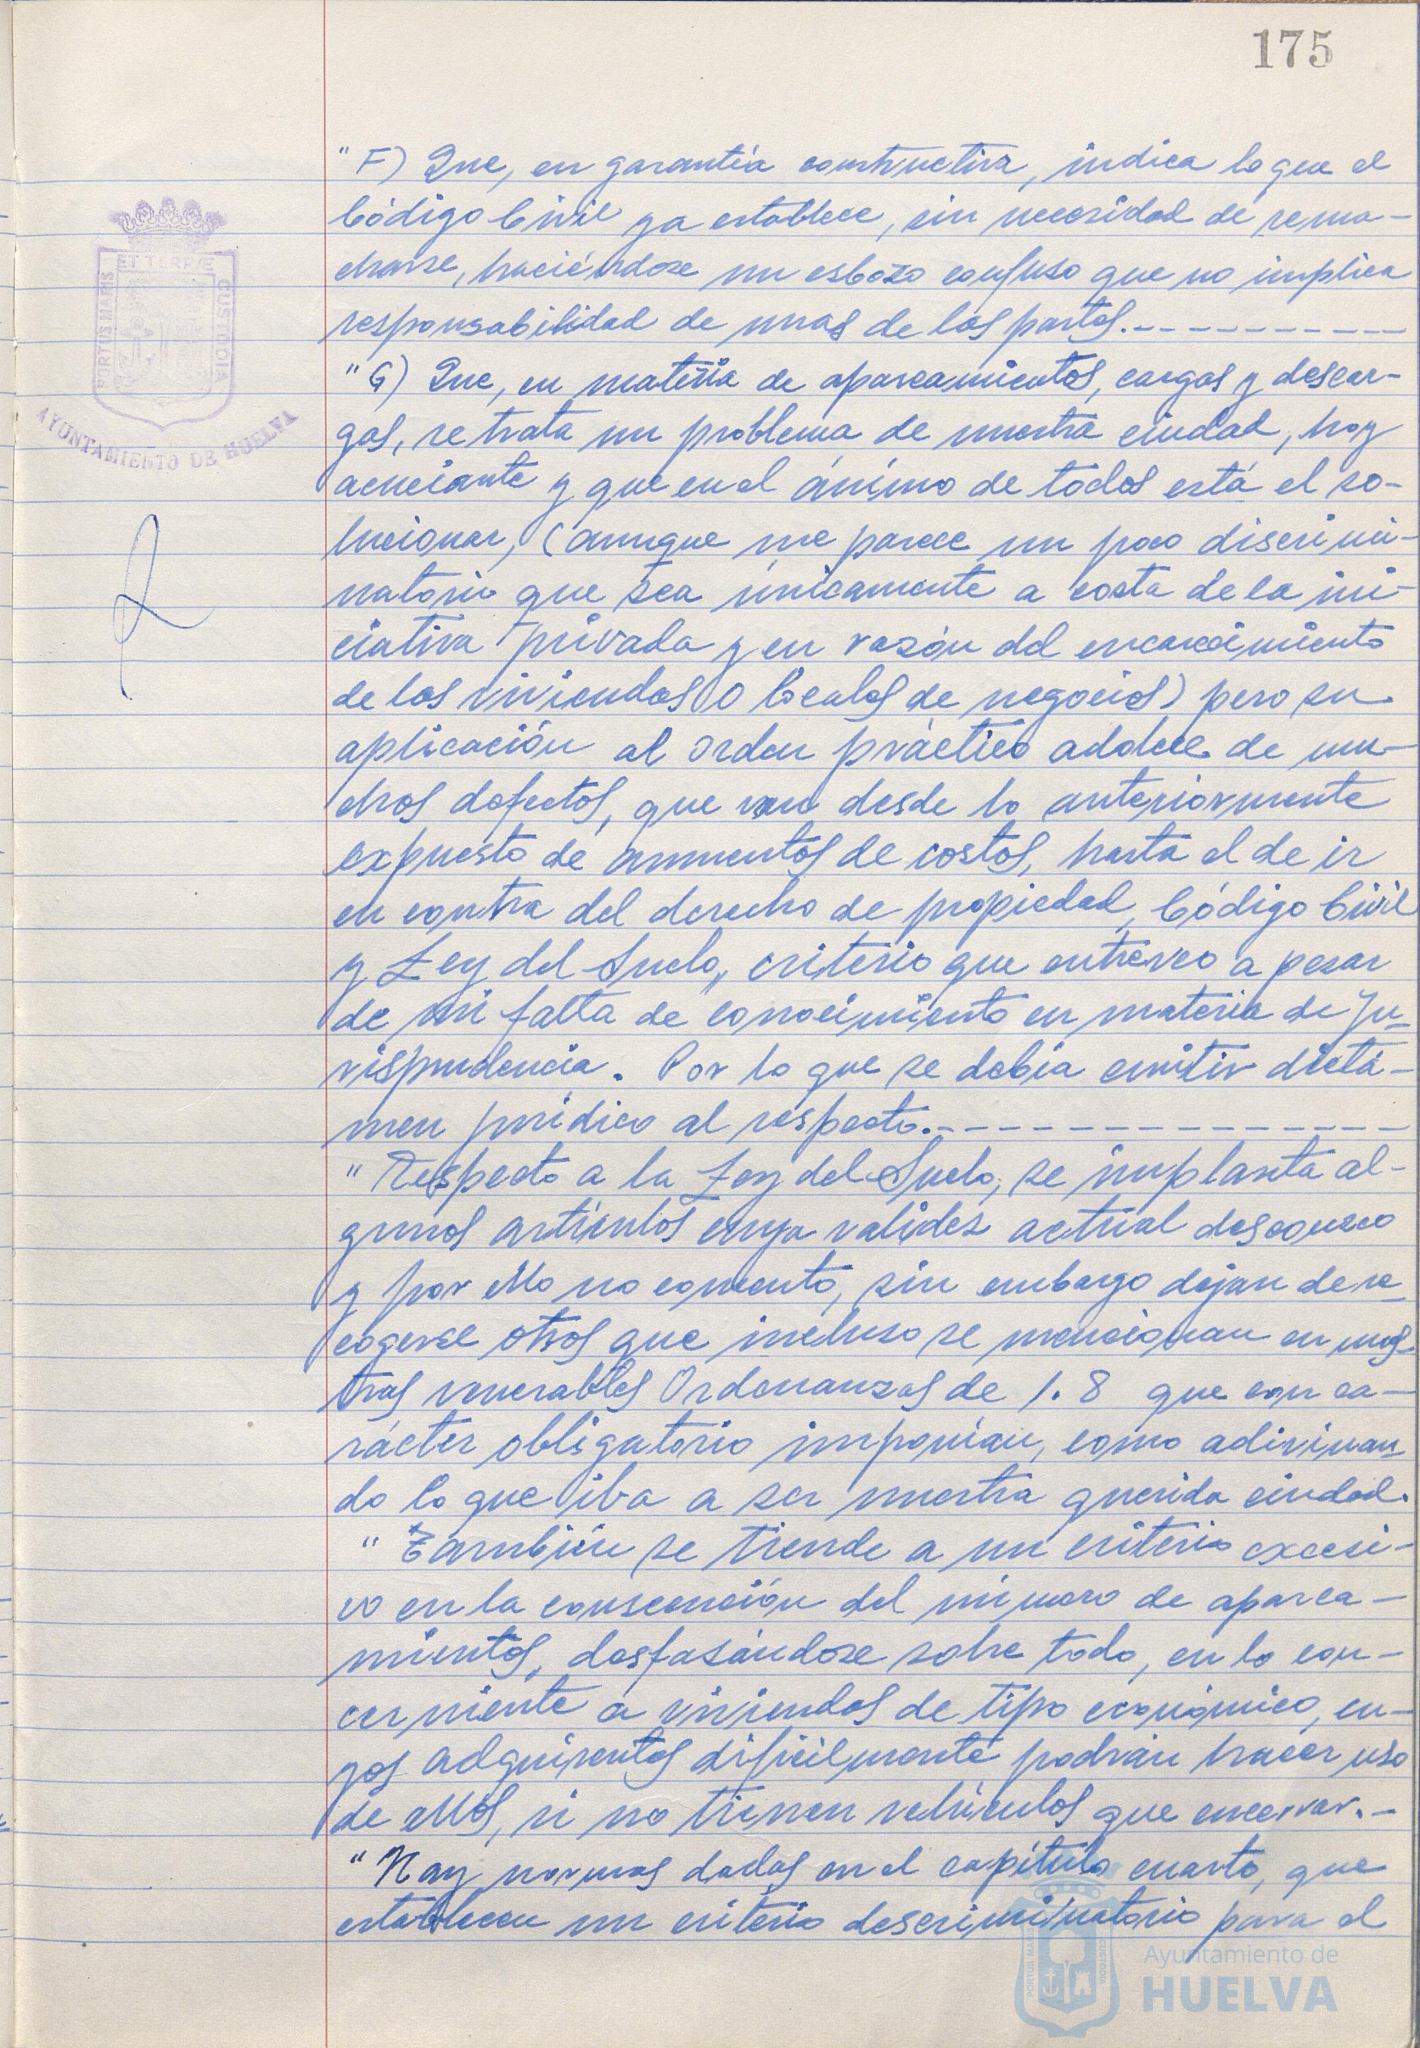 175
PORTUS MARIS ET TERRÆ CUSTODIA
AYUNTAMIENTO DE HUELVA
"F) Que, en garantía constructiva, indica lo que el
Código Civil ya establece, sin necesidad de rema-
charse, haciéndose un esbozo confuso que no implica
responsabilidad de unas de las partes.----------
"G) Que, en materia de aparcamientos, cargas y descar-
gas, se trata un problema de nuestra ciudad, hoy
acuciante y que en el ánimo de todos está el so-
lucionar, (aunque me parece un poco discrimi-
natorio que sea únicamente a costa de la ini-
ciativa privada y en razón del encarecimiento
de las viviendas o locales de negocios) pero su
aplicación al orden práctico adolece de mu-
chos defectos, que van desde lo anteriormente
expuesto de aumentos de costos, hasta el de ir
en contra del derecho de propiedad, Código Civil
y Ley del Suelo, criterio que entreveo a pesar
de mi falta de conocimiento en materia de Ju-
risprudencia. Por lo que se debía emitir dictá-
men jurídico al respecto.--------------
"Respecto a la Ley del Suelo, se implanta al-
gunos artículos cuya validez actual desconozco
y por ello no comento, sin embargo dejan de re-
cogerse otros que incluso se mencionan en nues-
tras venerables Ordenanzas de 1.8 que con ca-
rácter obligatorio imponían, como adivinan-
do lo que iba a ser nuestra querida ciudad.
"También se tiende a un criterio excesi-
vo en la consecención del número de aparca-
mientos, desfasándose sobre todo, en lo con-
cerniente a viviendas de tipo económico, cu-
yos adquirentes dificilmente podrán hacer uso
de ellos, si no tienen vehículos que encerrar.-
"Hay normas dadas en el capítulo cuarto, que
establecen un criterio descriminatorio para el
PORTUS MARIS CUSTODIA
Ayuntamiento de
HUELVA